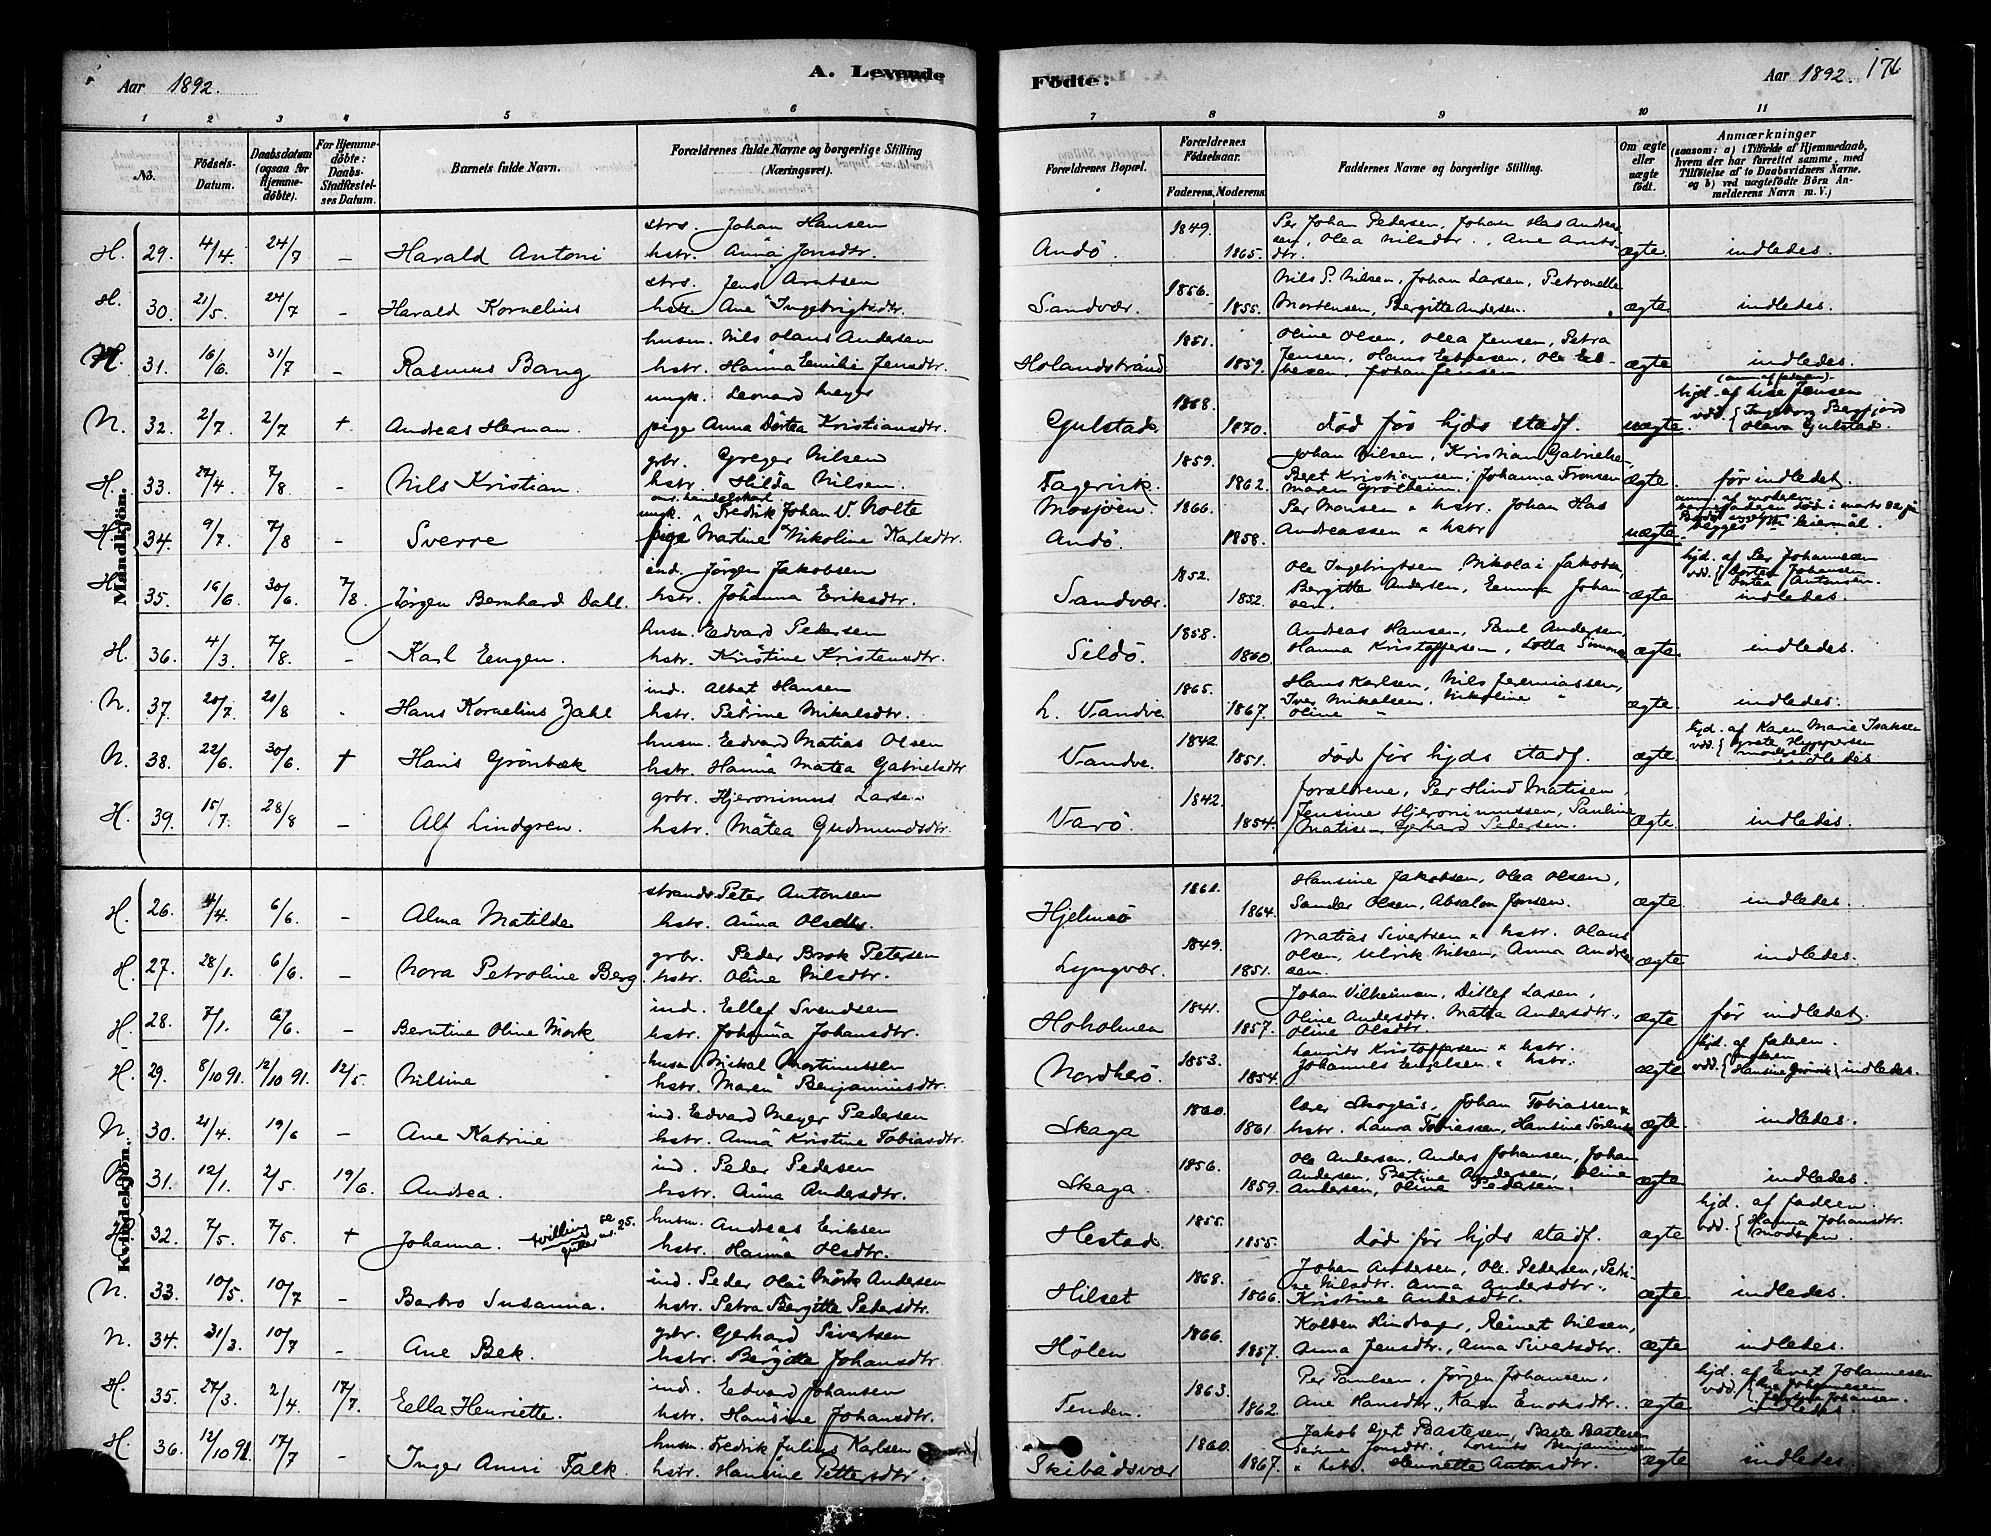 Aar 1892. A. Levende Födte: Aar 1892. 176
1 2 3 4 5 6 7 8 9 10 11
No. Födsels-Datum. Daabsdatum (ogsaa for Hjemmedöbte). For Hjemmedöbte: Daabs-Stadfæstelses Datum. Barnets fulde Navn. Forældrenes fulde Navne og borgerlige Stilling (Næringsvei). Forældrenes Bopæl. Forældrenes Födselsaar. Faderens. Moderens. Faddernes Navne og borgerlige Stilling. Om ægte eller uægte födt. Anmærkninger (saasom: a) i Tilfælde af Hjemmedaab, hvem der har forrettet samme, med Tilföielse af to Daabsvidners Navne, og b) ved uægtefödte Börn Anmelderens Navn m. V.)
Mandkjön.
H. 29. 4/4. 24/7 – Harald Antoni strs. Johan Hansen
hstr. Anna Jonsdtr. Andö. 1849. 1865. Per Johan Pedersen, Johan Has Andreassen, Olea Nilsdtr., Ane Arntsdtr. ægte indledes.
H. 30. 21/5. 24/7 – Harald Kornelius strs. Jens Arntsen
hstr. Ane Ingebrigtsdtr. Sandvær. 1856. 1855. Nils P. Nilsen, Johan Larsen, Petronelle Mortensen, Bergitte Andersen. ægte indledes.
H. 31. 16/6. 31/7 – Rasmus Bang husm. Nils Olaus Andersen
hstr. Hanna Emilie Jensdtr. Holandstrand 1851. 1859. Oline Olsen, Olea Jensen, Petra Jensen, Hans Esbesen, Ole Esbesen, Johan Jensen ægte indledes.
N. 32. 2/7. 2/7 + Andreas Herman. ungk. Leonard Meyer
pige Anna Dortea Kristiansdtr. Gulstad. 1868. 1870. död för hjds stadf. uægte. (anm. af faderen) hjd. af Lise Jensen
vdd. { Ingeborg Bergfjord
Olava Gulstad.
H. 33. 27/4. 7/8 – Nils Kristian. grbr. Greger Nilsen
hstr. Hilda Nilsen. Fagervik. 1859. 1862. Johan Nilsen, Kristian Gabrielsen, Beret Kristiansen, Johanna Fronsen Maren Grotheim. ægte för indledet.
H. 34. 9/7. 7/8 – Sverre ungk. handelskarl Fredrik Johan V. Nolte
pige Martine Nikoline Karlsdtr. Mosjöen. Andö. 1866. 1858. Per Monsen & hstr. Johan Has Andreassen & hstr uægte. anm. af moderen
faderen död i marts 92
begges leiermål.
H. 35. 16/6 30/6 7/8. Jörgen Bernhard Dahl. ind. Jörgen Jakobsen
hstr. Johanna Eriksdtr. Sandvær. 1852. 1852. Ole Ingebrigtsen, Nikolai Jakobsen, Bergitte Andersen, Emma Johansen. ægte hjd. af Per Johannesen
vdd. { Dortea Johansen
Dortea Antonsen.
indledes.
H. 36. 4/3. 7/8. – Karl Eengen. husm. Edvard Pedersen
hstr. Kristine Kristensdtr. Sildö. 1858. 1860. Andreas Hansen, Paul Andersen, Hanna Kristoffersen, Lotta Simonsen ægte indledes.
N. 37. 20/7. 21/8 – Hans Kornelius Zahl ind. Albert Hansen
hstr. Petrine Mikalsdtr. L. Vandve 1865. 1867. Hans Karlsen, Nils Jeremiassen, Iver Mikelsen, Nikoline "
Oline " ægte indledes.
N. 38. 22/6. 30/6. + Hans Grönbæk husm. Edvard Matias Olsen
hstr. Hanna Matea Gabrielsdtr Vandve. 1842. 1851. död för hjds stadf. ægte hjd. af Karen Marie Isaksen
vdd.
moderen
indledes
H. 39. 15/7. 28/8 – Alf Lindgren. grbr. Hjeronimus Larsen
hstr. Matea Gudmundsdtr. Varö. 1842. 1854. forældrene, Per Hind Matisen, Jensine Hjeronimussen, Pauline Matisen, Gerhard Pedersen. ægte indledes.
Kvindekjön.
H. 26. 4/4. 6/6. – Alma Matilde strands. Peter Antonsen
hstr. Anna Olsdtr. Hjelmsö 1861. 1864. Hansine Jakobsen, Olea Olsen, Sander Olsen, Absalon Jonsen. ægte indledes.
H. 27. 28/1. 6/6. – Nora Petroline Berg grbr. Peder Brok Petersen
hstr. Oline Nilsdtr. Lyngvær. 1849. 1851. Matias Sivertsen & hstr. Olaus Olsen, Ulrik Nilsen, Anna Andersen. ægte indledes.
H. 28. 7/1. 6/6. – Berntine Oline Mörk ind. Ellef Svendsen
hstr. Johanna Johansdtr. Hoholmen 1841. 1857. Johan Vilhelmsen, Ditlef Larsen, Oline Andersdtr. Matea Andersdtr., Oline Olsdtr ægte för indledet.
H. 29. 8/10 91. 12/10 91. 12/5. Nilsine husm. Mikal Mortinussen
hstr. Maren Benjaminsdtr. Nordherö. 1853. 1854. Laurits Kristoffersen & hstr. Johannes Engelsen & hstr. ægte hjd. af faderen.
vdd. { moderen
Hansine Grönvik } indledes.
N. 30. 21/4. 19/6 – Ane Katrine ind. Edvard Meyer Pedersen
hstr. Anna Kristine Tobiasdtr. Skaga 1860. 1861. lærer Skogaas, Johan Tobiassen & hstr. Laura Tobiassen, Hansine Sörensen ægte. indledes.
N. 31. 12/1. 2/5. 19/6. Andrea. ind. Peder Pedersen
hstr. Anna Andersdtr. Skaga. 1856. 1859. Ole Andersen, Anders Johansen, Johan Andersen, Bertine Andersen, Oline Andersen, Oline Pedersen. ægte indledes.
H. 32. 7/5. 7/5. + Johanna. tvilling se gutter nr. 25. husm. Andreas Eriksen
hstr. Hanna Olsdtr. Hestad. 1855. 1855. död för hjds stadf. ægte hjd. af faderen.
vdd. { Hanna Johansdtr.
Moderen.
N. 33. 10/5. 10/7 – Barbro Susanna. ind. Peder Olai Mörk Andersen
hstr. Petra Bergitte Pedersdtr. Hilset 1868. 1866. Johan Andersen, Ole Pedersen, Petrine Nilsdtr. Anna Andersdtr. Kristine Andersdtr. ægte indledes.
N. 34. 31/3. 10/7 – Ane Bek. grbr. Gerhard Sivertsen
hstr. Bergitte Johansdtr. Hölen 1866. 1857. Kolben Hindrager, Reinert Nilsen, Anna Jensdtr., Anna Sivertsdtr. ægte indledes.
H. 35. 27/3. 2/4. 17/7. Eella Henriette. ind. Edvard Johansen
hstr. Hansine Johansdtr. Tenden. 1863. 1862. Per Paulsen, Jörgen Johansen, Ane Hansdtr., Karen Enoksdtr. ægte hjd. af Johannesen
vdd. { Johannesen
Johansen.
indledes
H. 36. 12/10 91. 17/7 – Inger Anni Falk. husm. Fredrik Julius Karlsen
hstr. Hansine Pettersdtr. Skibaadsvær 1860. 1867. Jakob Bastesen, Baste Bastesen Jonsdtr., Lorents Benjaminsen & hstr. Henriette Antonsdtr. ægte indledes.